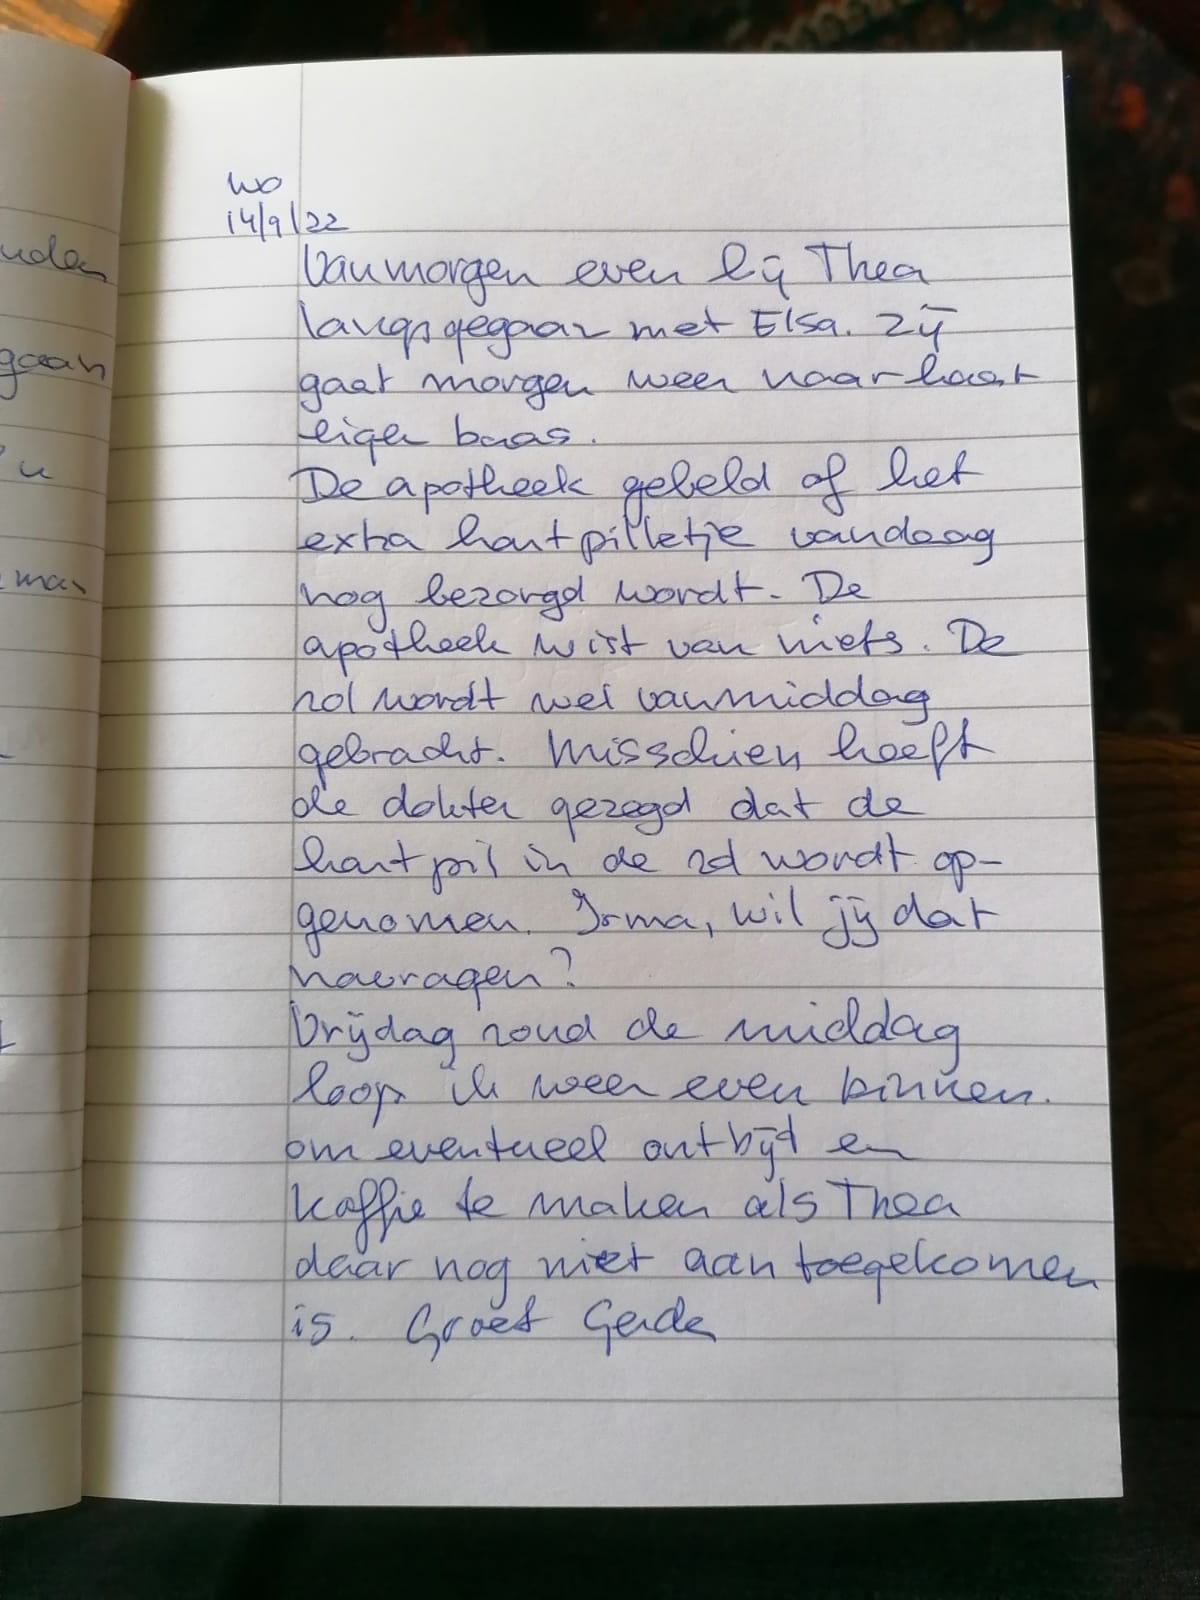 uden
gaan
u
mar
wo
14/9/22
Vanmorgen even bij Thea
langsgegaan met Elsa. Zij
gaat morgen weer naar haar
eigen baas.
De apotheek gebeld of het
extra hartpilletje vandaag
nog bezorgd wordt. De
apotheek wist van niets. De
rol wordt wel vanmiddag
gebracht. Misschien heeft
de dokter gezegd dat de
hartpil in de rol wordt op-
genomen. Irma, wil jij dat
navragen?
Vrijdag rond de middag
loop ik weer even binnen.
om eventueel ontbijt en
koffie te maken als Thea
daar nog niet aan toegekomen
is. Groet Gerda